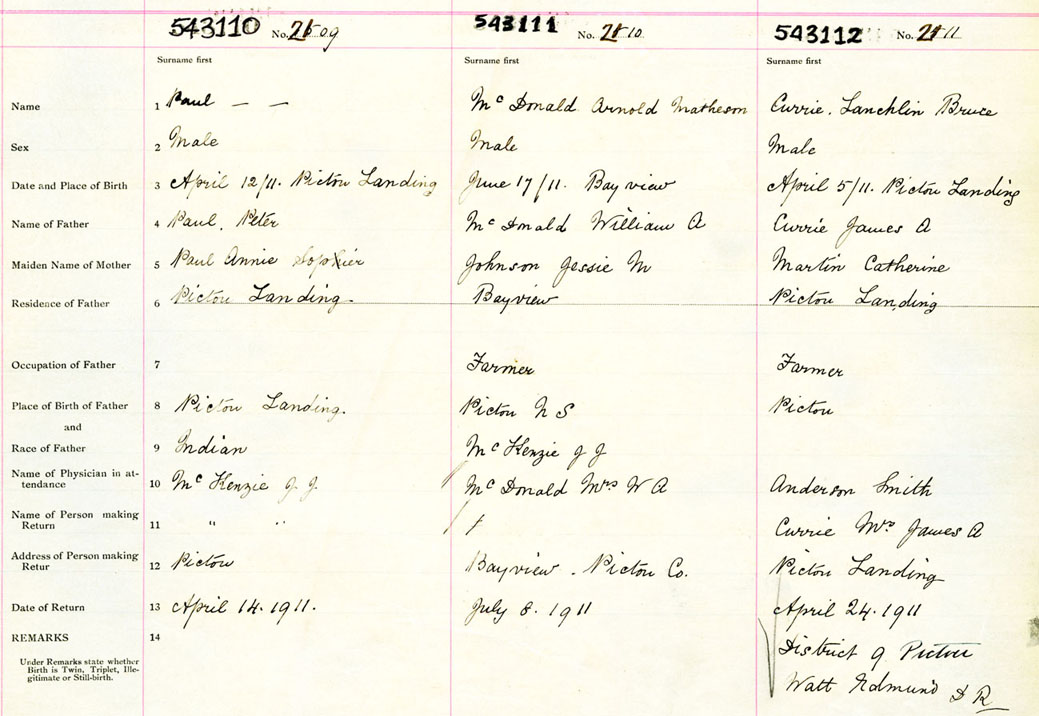 543110 No. 2509 543111 No. 2510 543112 No. 2511
Surname first Surname first Surname first
Name 1 Paul — — Mc Donald Arnold Matheson Currie. Lanchlin Bruce
Sex 2 Male Male Male
Date and Place of Birth 3 April 12/11. Pictou Landing June 17/11. Bayview April 5/11. Pictou Landing
Name of Father 4 Paul, Peter Mc Donald William A Currie James A
Maiden Name of Mother 5 Paul Annie Johnson Jessie M Martin Catherine
Residence of Father 6 Pictou Landing. Bayview Pictou Landing
Occupation of Father 7 Farmer Farmer
Place of Birth of Father 8 Pictou Landing. Pictou N S Pictou
and
Race of Father 9 Indian Mc Kenzie J J
Name of Physician in at-
tendance 10 Mc Kenzie J J. Mc Donald Mrs W A Anderson Smith
Name of Person making
Return 11 " " Currie Mrs James A
Address of Person making
Retur 12 Pictou Bayview. Pictou Co. Pictou Landing
Date of Return 13 April 14. 1911. July 8. 1911 April 24. 1911
REMARKS 14
District 9 Pictou
Under Remarks state whether
Birth is Twin, Triplet, Ille-
gitimate or Still-birth.
Watt Edmund D R